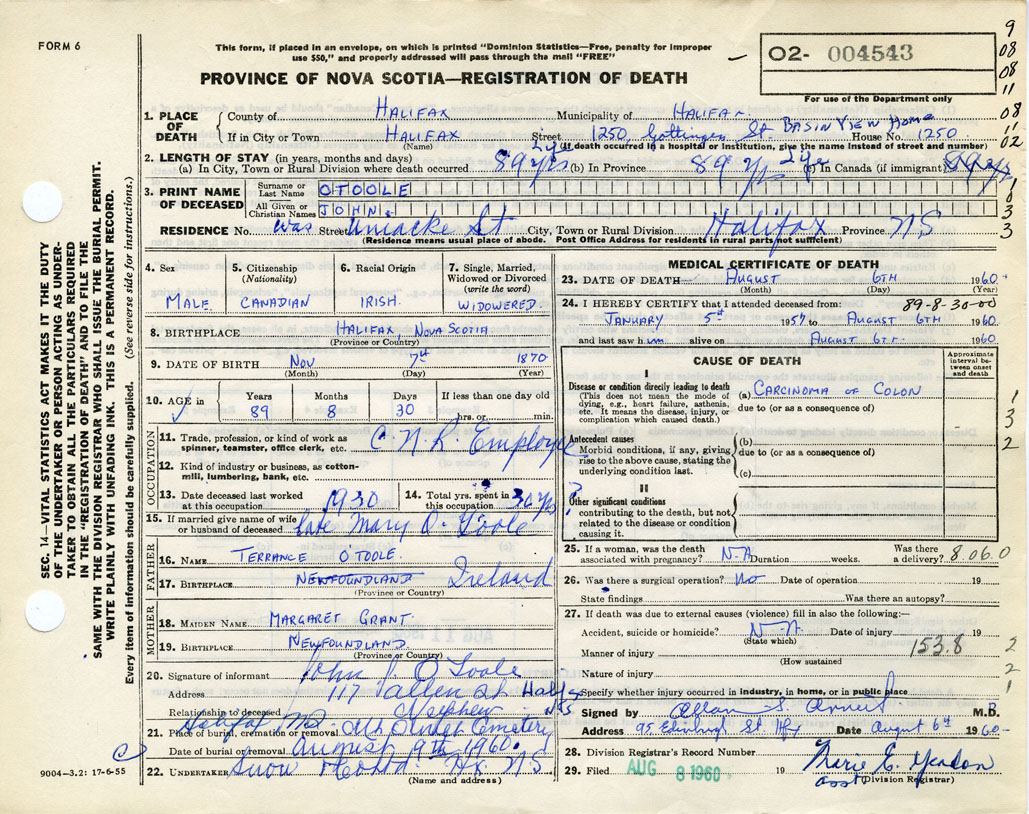 FORM 6
This form, if placed in an envelope, on which is printed "Dominion Statistics—Free, penalty for improper
use $50," and properly addressed will pass through the mail "FREE"
PROVINCE OF NOVA SCOTIA—REGISTRATION OF DEATH
02- 004543
For use of the Department only
9
08
08
11
08
11
02
SEC. 14—VITAL STATISTICS ACT MAKES IT THE DUTY
OF THE UNDERTAKER OR PERSON ACTING AS UNDER-
TAKER TO OBTAIN ALL THE PARTICULARS REQUIRED
IN THE "REGISTRATION OF DEATH" AND TO FILE
SAME WITH THE DIVISION REGISTRAR WHO SHALL ISSUE THE BURIAL PERMIT.
WRITE PLAINLY WITH UNFADING INK. THIS IS A PERMANENT RECORD.
Every item of information should be carefully supplied. (See reverse side for instructions.)
1. PLACE OF DEATH
County of HALIFAX Municipality of HALIFAX
If in City or Town HALIFAX Street 1250 Gottingen St. BASIN VIEW HOME House No. 1250
(Name) (If death occurred in a hospital or institution, give the name instead of street and number)
2. LENGTH OF STAY (in years, months and days)
(a) In City, Town or Rural Division where death occurred 89 yrs Life (b) In Province 89 yrs Life (c) In Canada (if immigrant) 89 yrs
3. PRINT NAME OF DECEASED
Surname or Last Name OTOOLE
All Given or Christian Names JOHN
RESIDENCE No. was Street Uniacke St City, Town or Rural Division Halifax Province NS
(Residence means usual place of abode. Post Office Address for residents in rural parts not sufficient)
1
0
3
3
4. Sex MALE
5. Citizenship (Nationality) CANADIAN
6. Racial Origin IRISH.
7. Single, Married, Widowed or Divorced (write the word) WIDOWERED.
8. BIRTHPLACE HALIFAX, NOVA SCOTIA
(Province or Country)
9. DATE OF BIRTH NOV 7th 1870
(Month) (Day) (Year)
10. AGE in Years 89 Months 8 Days 30 If less than one day hrs. or min.
OCCUPATION
11. Trade, profession, or kind of work as spinner, teamster, office clerk, etc. C.N.R. Employee
12. Kind of industry or business, as cotton-mill, lumbering, bank, etc.
13. Date deceased last worked at this occupation 1930
14. Total yrs. spent in this occupation 30 yrs
15. If married give name of wife or husband of deceased late Mary O'Toole
FATHER
16. NAME TERRANCE O'TOOLE.
17. BIRTHPLACE NEWFOUNDLAND Ireland
(Province or Country)
MOTHER
18. MAIDEN NAME MARGARET GRANT.
19. BIRTHPLACE NEWFOUNDLAND.
(Province or Country)
20. Signature of informant John J. O'Toole
Address 117 Allen St Halifax NS
Relationship to deceased Nephew
21. Place of burial, cremation or removal Halifax NS. Mt Olivet Cemetery
Date of burial or removal August 9th 1960.
22. UNDERTAKER Snow & Co Ltd Hx NS
(Name and address)
9004—3.2: 17-6-55
MEDICAL CERTIFICATE OF DEATH
23. DATE OF DEATH AUGUST 6TH 1960
(Month) (Day) (Year)
24. I HEREBY CERTIFY that I attended deceased from: 89-8-30-00
JANUARY 5th 1957 to AUGUST 6TH 1960
and last saw him alive on AUGUST 6TH 1960
CAUSE OF DEATH
Approximate interval between onset and death
I
Disease or condition directly leading to death (a) CARCINOMA OF COLON
(This does not mean the mode of dying, e.g., heart failure, asthenia, etc. It means the disease, injury, or complication which caused death.)
due to (or as a consequence of)
Antecedent causes (b)
Morbid conditions, if any, giving rise to the above cause, stating the underlying condition last.
due to (or as a consequence of)
(c)
II
Other significant conditions contributing to the death, but not related to the disease or condition causing it.
1
3
2
25. If a woman, was the death associated with pregnancy? N.A. Duration weeks. Was there a delivery? 8.06.0
26. Was there a surgical operation? Not Date of operation 19
State findings Was there an autopsy?
27. If death was due to external causes (violence) fill in also the following:—
Accident, suicide or homicide? N.A. Date of injury 19
(State which)
Manner of injury 153.8 2
(How sustained)
Nature of injury 2
Specify whether injury occurred in industry, in home, or in public place 1
Signed by Allan M.D.
Address 95 Edinburgh St. Hfx Date August 6th 1960
28. Division Registrar's Record Number
29. Filed AUG 8 1960 19 Marie E.
Asst (Division Registrar)